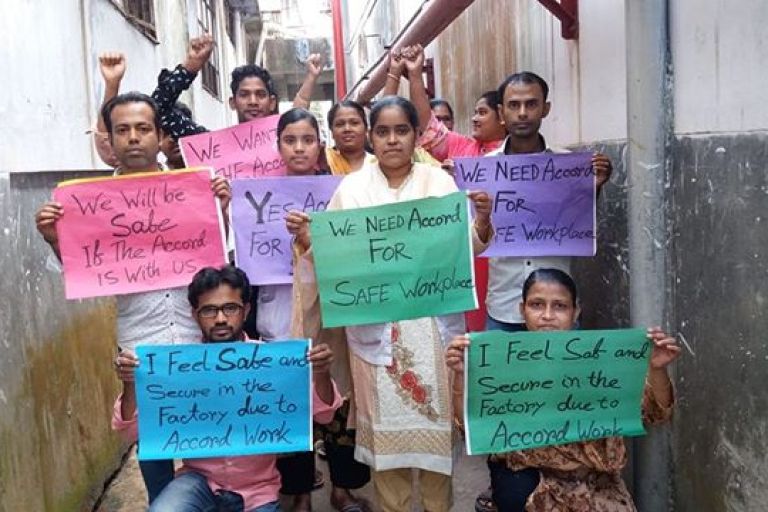 We WANT
THE ACCORD
We Will be
Sabe
If The Accord
is With us
Yes Acc
For
We Need Accord
For
Safe Workplace
We Need Accord
For
fe Workplace
I Feel Sabe and
Secure in the
Factory due to
Accord Work
I Feel Saf and
Secure in the
Factory due to
Accord Work